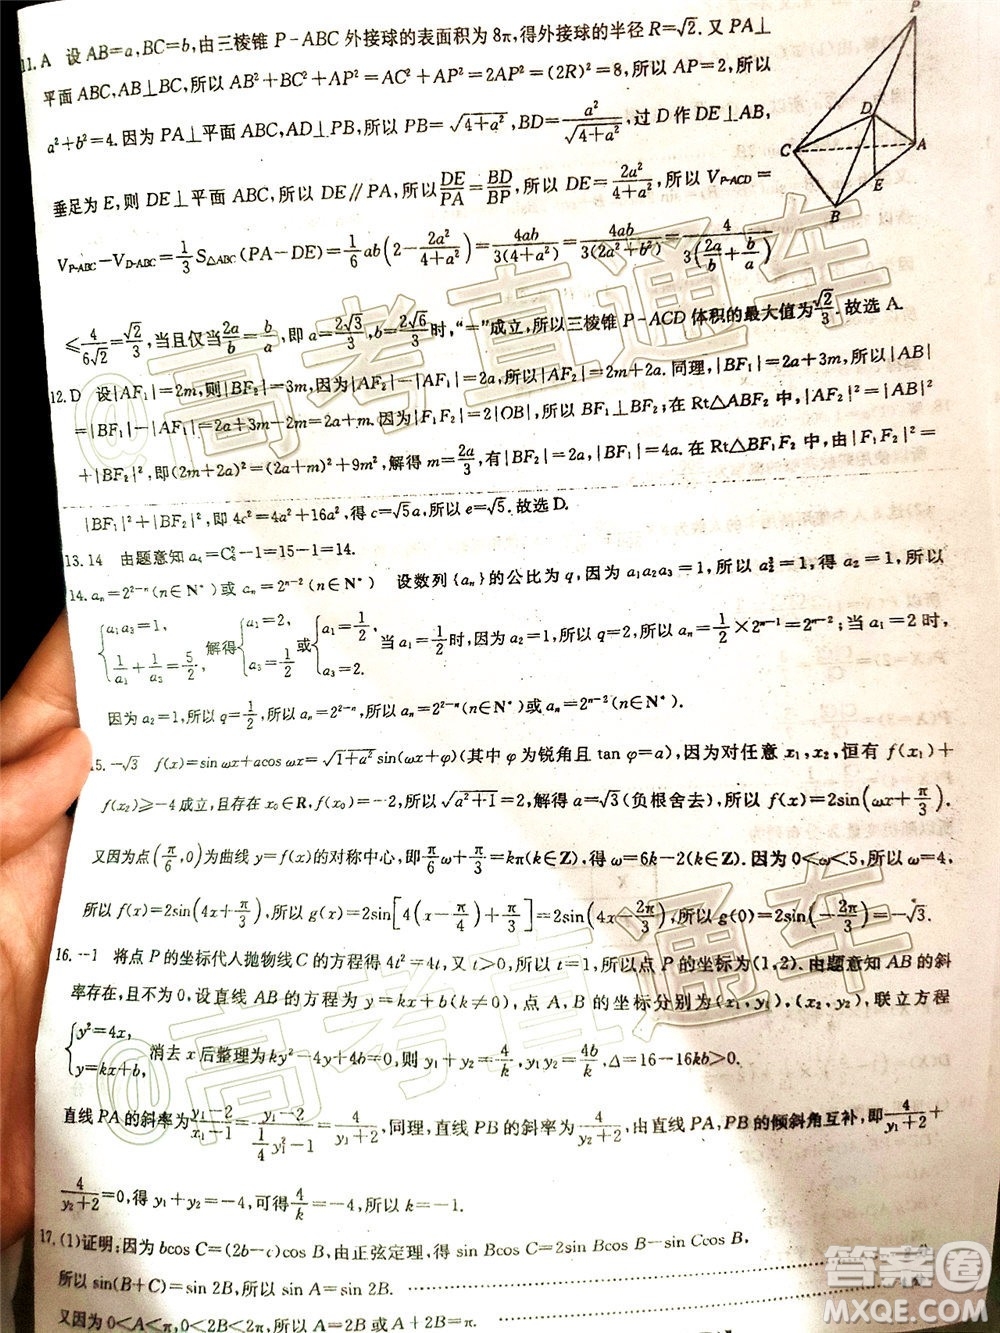 11. A 设 AB=a, BC=b, 由三棱锥 P-ABC 外接球的表面积为 8π, 得外接球的半径 R=√2. 又 PA⊥
平面 ABC, AB⊥BC, 所以 AB²+BC²+AP²=AC²+AP²=2AP²=(2R)²=8, 所以 AP=2, 所以
a²+b²=4. 因为 PA⊥平面 ABC, AD⊥PB, 所以 PB=√(4+a²), BD=a²/√(4+a²), 过 D 作 DE⊥AB,
垂足为 E, 则 DE⊥平面 ABC, 所以 DE∥PA, 所以 DE/PA=BD/BP, 所以 DE=2a²/(4+a²), 所以 V_{P-ACD}=
V_{P-ABC}-V_{D-ABC}=1/3 S_{△ABC}(PA-DE)=1/6 ab(2-2a²/(4+a²))=4ab/(3(4+a²))=4ab/(3(2a²+b²))=4/(3(2a/b+b/a))
≤4/(6√2)=√2/3, 当且仅当 2a/b=b/a, 即 a=2√3/3, b=2√6/3 时, “=”成立, 所以三棱锥 P-ACD 体积的最大值为 √2/3. 故选 A.
12. D 设|AF₁|=2m, 则|BF₂|=3m, 因为|AF₂|-|AF₁|=2a, 所以|AF₂|=2a+2m. 同理, |BF₁|=2a+3m, 所以|AB|
=|BF₁|-|AF₁|=2a+3m-2m=2a+m. 因为|F₁F₂|=2|OB|, 所以 BF₁⊥BF₂; 在 Rt△ABF₂ 中, |AF₂|²=|AB|²
+|BF₂|², 即(2m+2a)²=(2a+m)²+9m², 解得 m=2a/3, 有|BF₂|=2a, 所以|BF₁|=4a. 在 Rt△BF₁F₂ 中, |F₁F₂|²=
|BF₁|²+|BF₂|², 即 4c²=4a²+16a², 得 c=√5a, 所以 e=√5. 故选 D.
13. 14 由题意知 a₄=C₆²-1=15-1=14.
14. aₙ=2²⁻ⁿ(n∈N*)或 aₙ=2ⁿ⁻²(n∈N*) 设数列{aₙ}的公比为 q, 因为 a₁a₂a₃=1, 所以 a₂³=1, 得 a₂=1, 所以
{a₁a₃=1, 1/a₁+1/a₃=5/2, 解得{a₁=2, a₃=1/2 或{a₁=1/2, a₃=2. 当 a₁=1/2 时, 因为 a₂=1, 所以 q=2, 所以 aₙ=1/2×2ⁿ⁻¹=2ⁿ⁻²; 当 a₁=2 时,
因为 a₂=1, 所以 q=1/2, 所以 aₙ=2²⁻ⁿ, 所以 aₙ=2²⁻ⁿ(n∈N*)或 aₙ=2ⁿ⁻²(n∈N*).
5. -√3 f(x)=sin ωx+acos ωx=√(1+a²) sin(ωx+φ)(其中 φ 为锐角且 tan φ=a), 因为对任意 x₁, x₂, 恒有 f(x₁)+
f(x₂)≥-4 成立, 且存在 x₀∈R, f(x₀)=-2, 所以 √(a²+1)=2, 解得 a=√3(负根舍去), 所以 f(x)=2sin(ωx+π/3).
又因为点(π/6, 0)为曲线 y=f(x)的对称中心, 即 π/6 ω+π/3=kπ(k∈Z), 得 ω=6k-2(k∈Z). 因为 0<ω<5, 所以 ω=4,
所以 f(x)=2sin(4x+π/3), 所以 g(x)=2sin[4(x-π/4)+π/3]=2sin(4x-2π/3), 所以 g(0)=2sin(-2π/3)=-√3.
16. -1 将点 P 的坐标代人抛物线 C 的方程得 4t²=4t, 又 t>0, 所以 t=1, 所以点 P 的坐标为(1,2). 由题意知 AB 的斜
率存在, 且不为 0, 设直线 AB 的方程为 y=kx+b(k≠0), 点 A, B 的坐标分别为(x₁, y₁), (x₂, y₂), 联立方程
{y²=4x, y=kx+b, 消去 x 后整理为 ky²-4y+4b=0, 则 y₁+y₂=4/k, y₁y₂=4b/k, Δ=16-16kb>0.
直线 PA 的斜率为 (y₁-2)/(x₁-1)=(y₁-2)/(1/4 y₁²-1)=4/(y₁+2), 同理, 直线 PB 的斜率为 4/(y₂+2), 由直线 PA, PB 的倾斜角互补, 即 4/(y₁+2)+
4/(y₂+2)=0, 得 y₁+y₂=-4, 可得 4/k=-4, 所以 k=-1.
17. (1)证明: 因为 bcos C=(2b-c)cos B, 由正弦定理, 得 sin Bcos C=2sin Bcos B-sin Ccos B,
所以 sin(B+C)=sin 2B, 所以 sin A=sin 2B.
又因为 0<A<π, 0<2B<2π, 所以 A=2B 或 A+2B=π.
P
D
C
A
E
B
@高考直通车
@高考直通车
答案圈
MXQE.COM